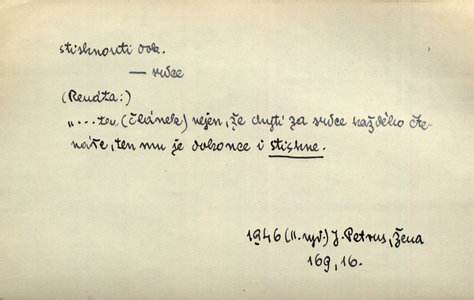 stisknouti dok.
— srdce
(Renáta:)
"...ten (článek) nejen, že chytí za srdce každého čte-
náře, ten mu je dokonce i stiskne.
1946 (II. vyd.) J. Petrus, Žena
169, 16.